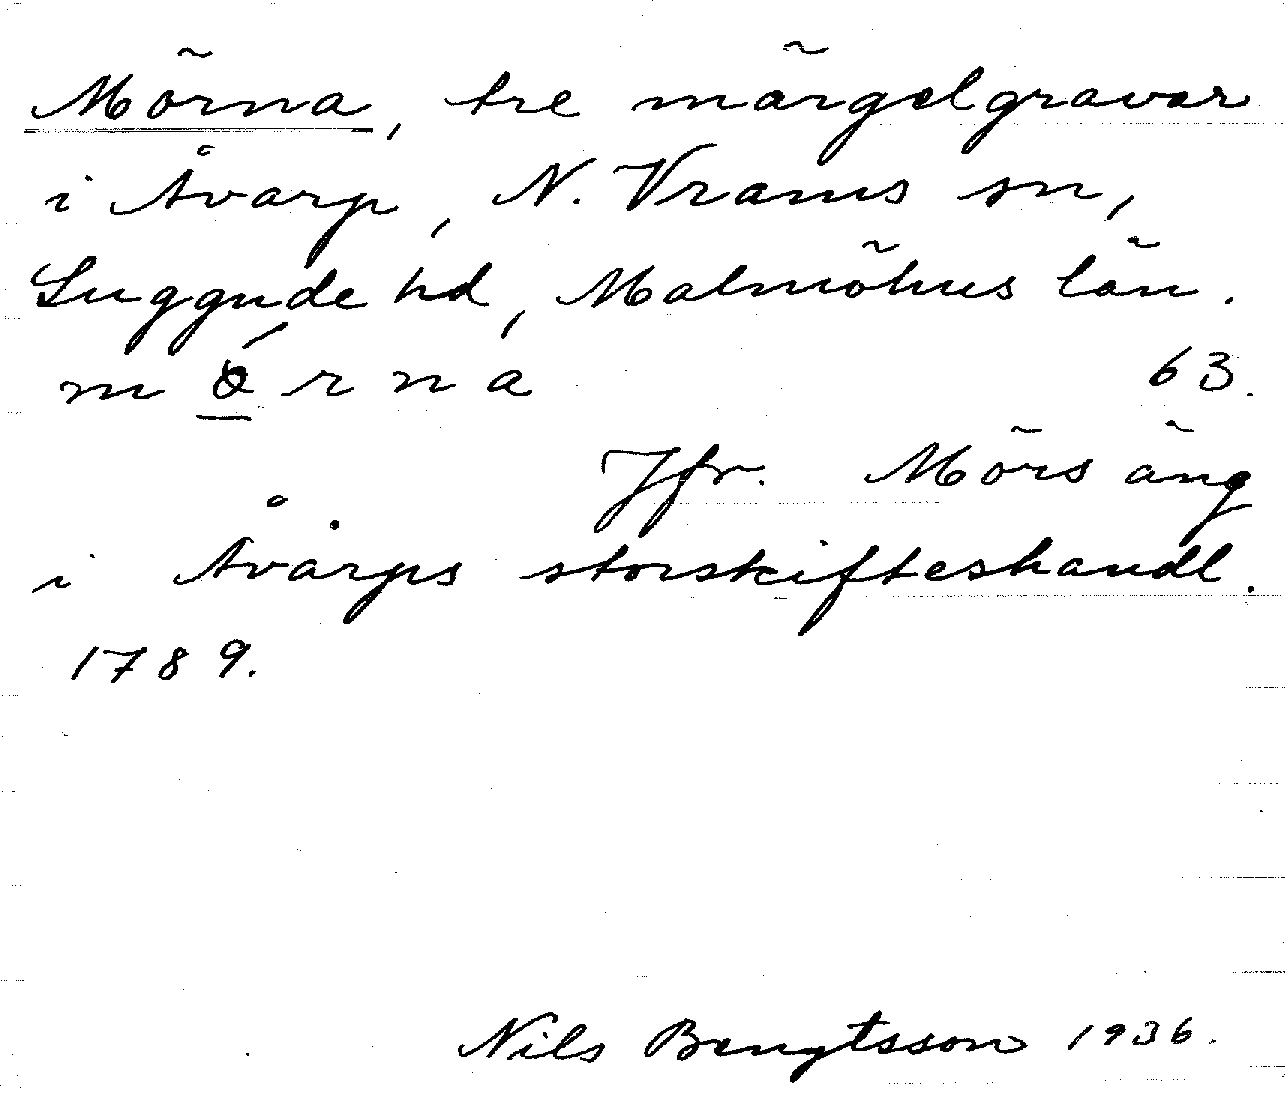 Mörna, tre märgelgravar
i Åvarp, N. Vrams sn,
Luggude hd, Malmöhus län.
m ǿ r n a 63.
Jfr. Mörs äng
i Åvarps storskifteshandl.
1789.
Nils Bengtsson 1936.